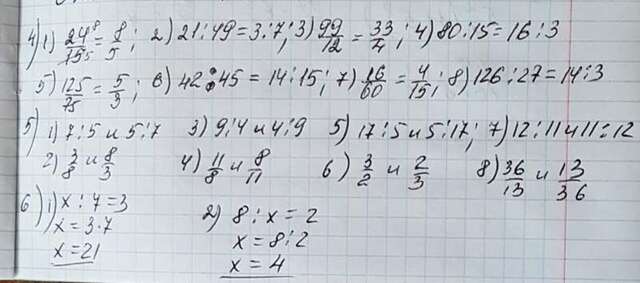 4) 1) 24⁸/15₅ = 8/5; 2) 21:49 = 3:7; 3) 99/12 = 33/4; 4) 80:15 = 16:3
5) 125/75 = 5/3; 6) 42:45 = 14:15; 7) 16/60 = 4/15; 8) 126:27 = 14:3
5) 1) 7:5 и 5:7 3) 9:4 и 4:9 5) 17:5 и 5:17; 7) 12:11 и 11:12
2) 3/8 и 8/3 4) 11/8 и 8/11 6) 3/2 и 2/3 8) 36/13 и 13/36
6) 1) x : 7 = 3 2) 8 : x = 2
x = 3·7 x = 8:2
x = 21 x = 4